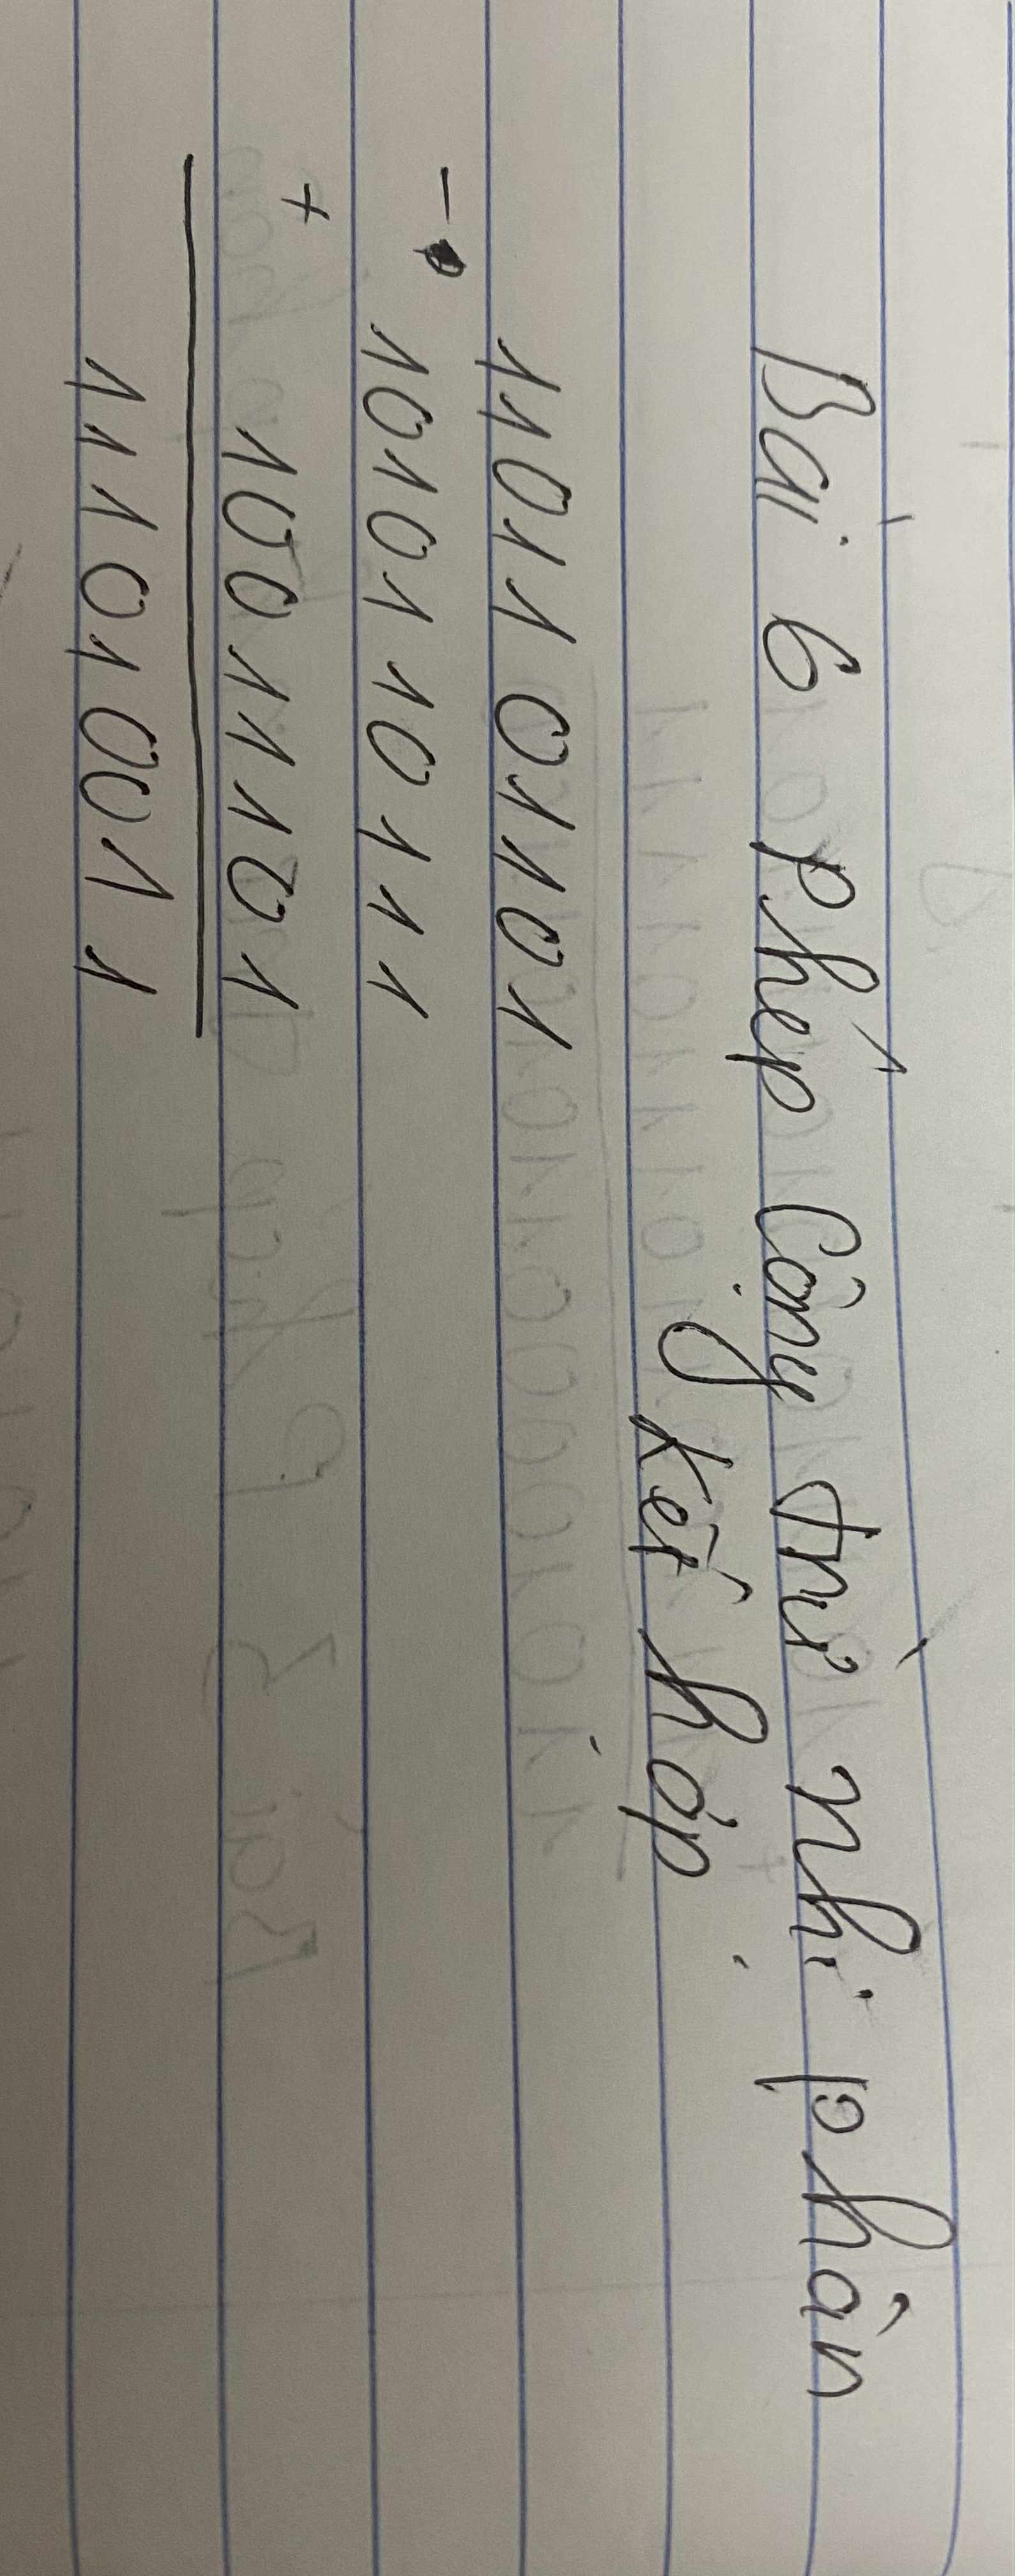 Bài 6 Phép Cộng trừ nhị phân
kết hợp
11011 01101
- 1010110111
+ 10011101
111010011